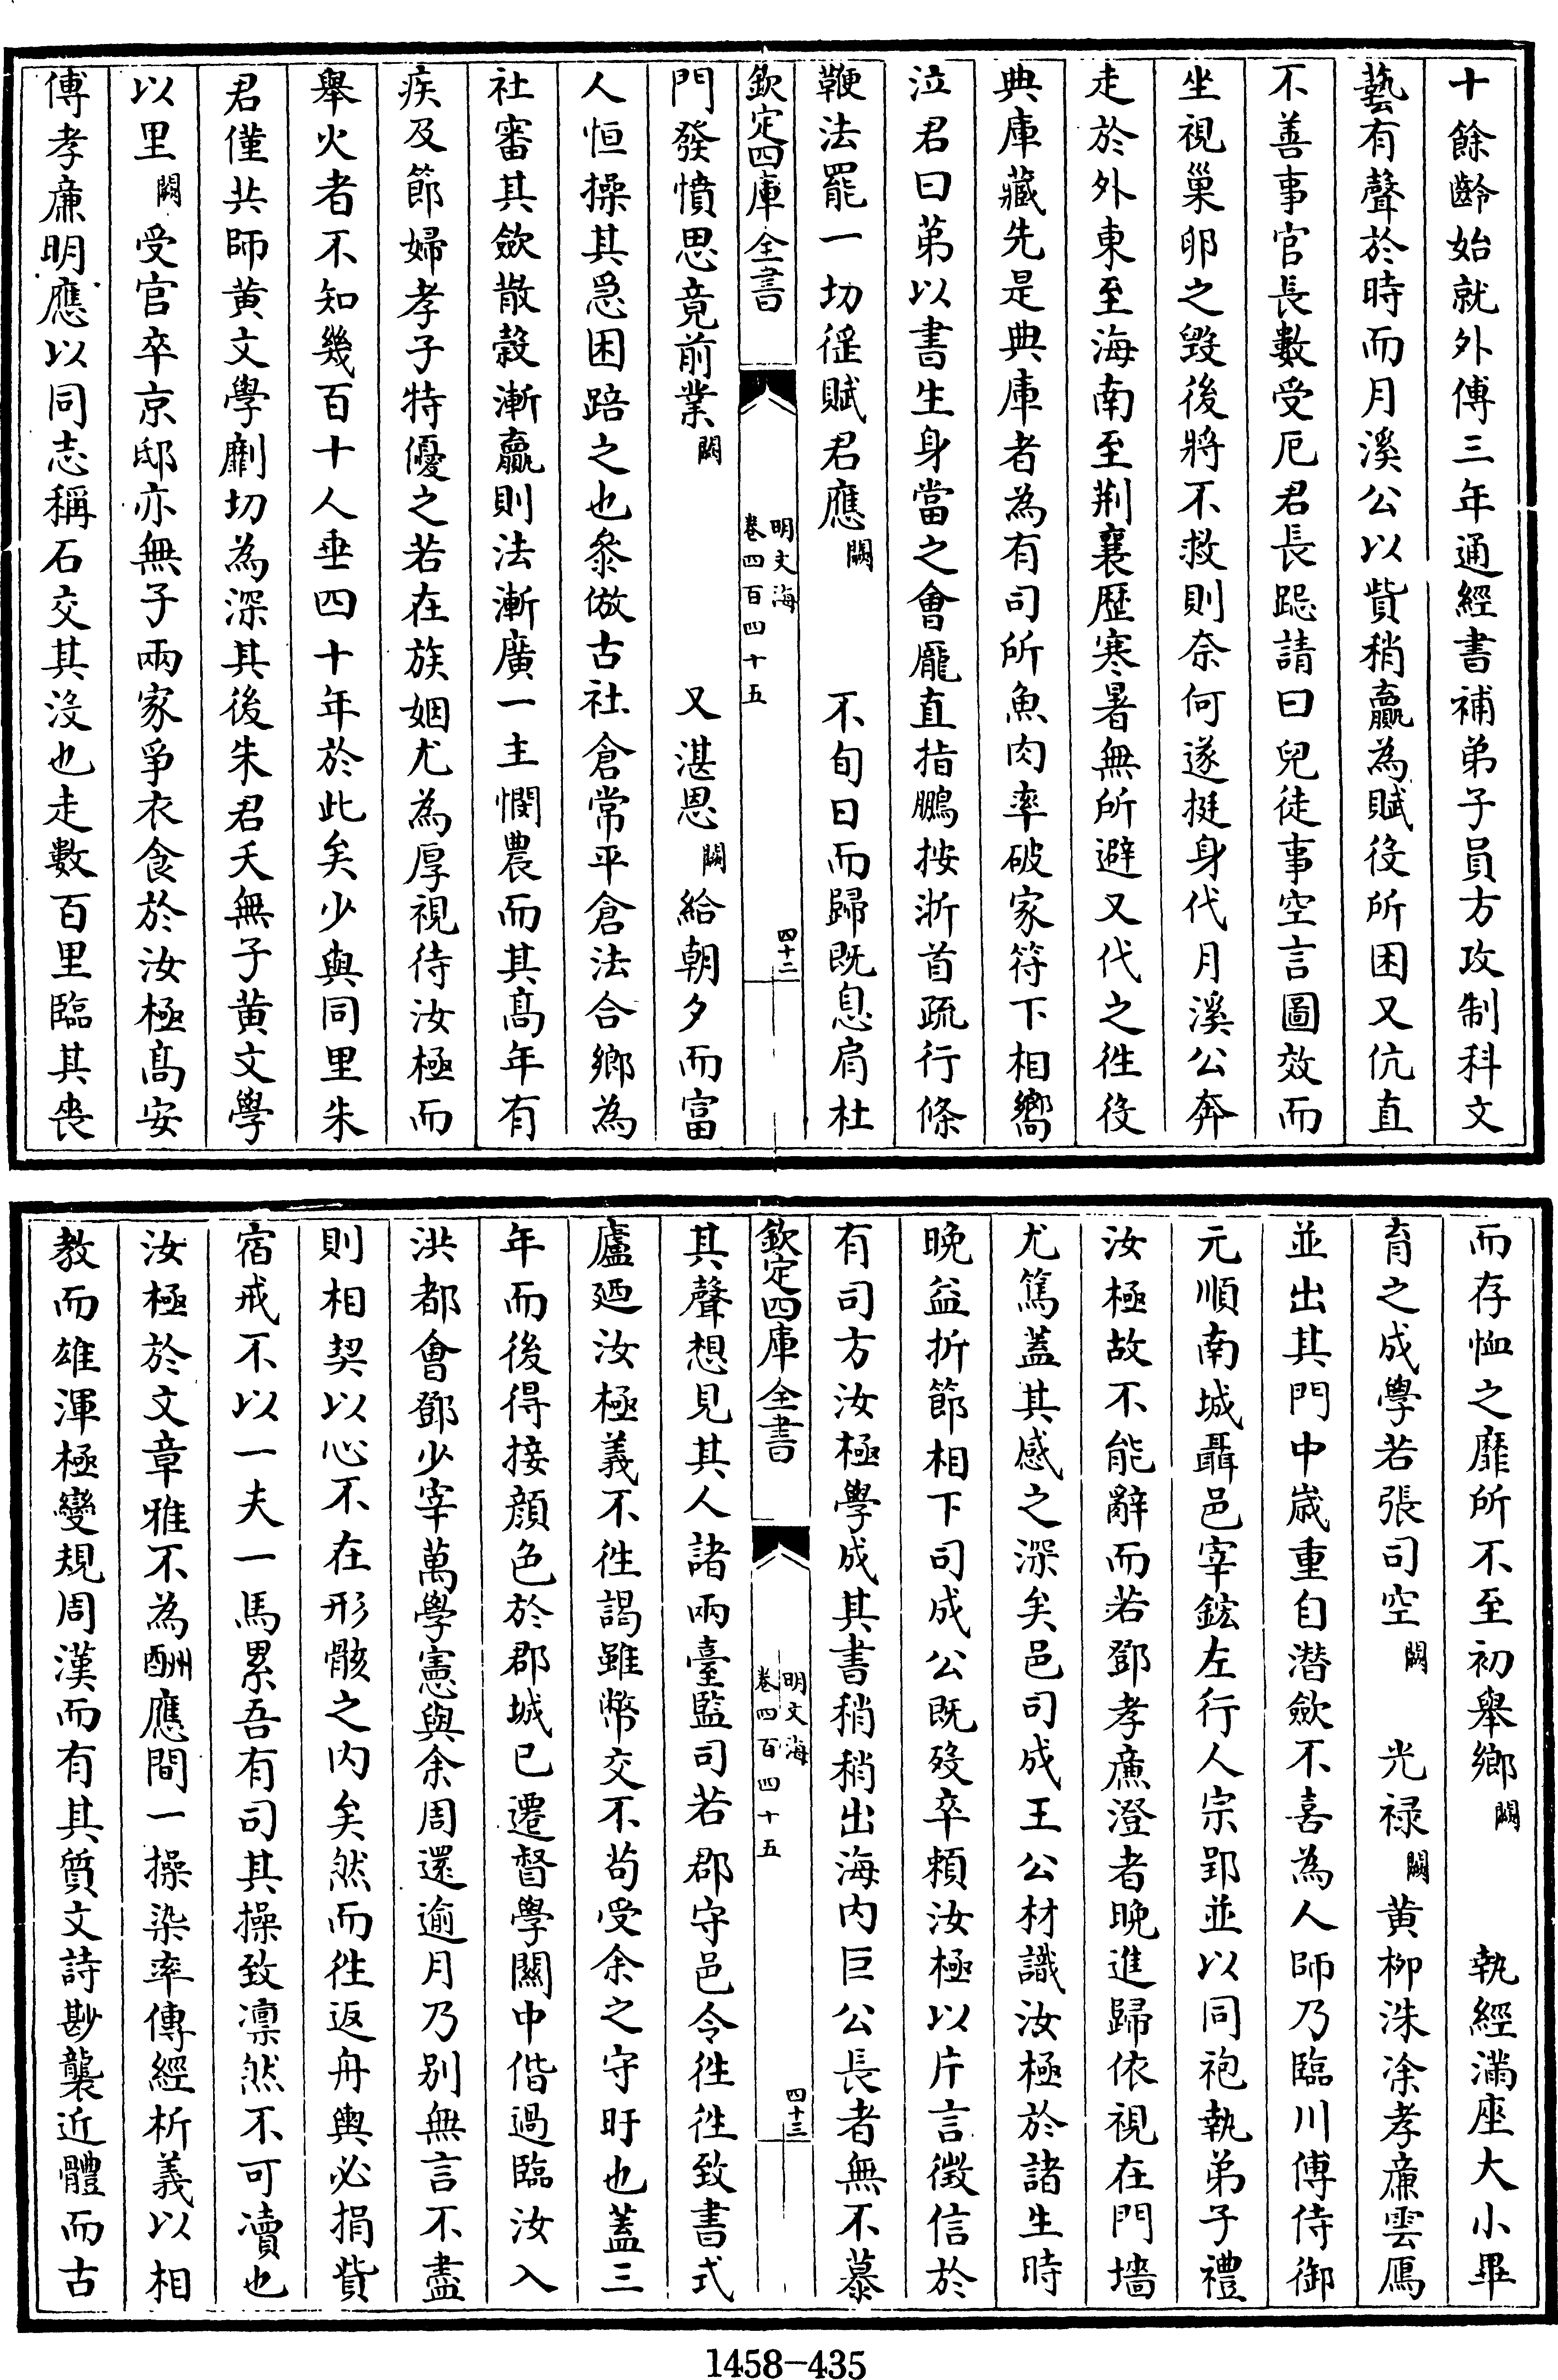 十餘齡始就外傅三年通經書補弟子員方攻制科文
藝有聲於時而月溪公以貲稍贏為賦役所困又伉直
不善事官長數受厄君長跽請曰兒徒事空言圖效而
坐視巢卵之毀後將不救則奈何遂挺身代月溪公奔
走於外東至海南至荆襄歷寒暑無所避又代之徃役
典庫藏先是典庫者為有司所魚肉率破家符下相嚮
泣君曰苐以書生身當之會龎直指鵬按浙首疏行條
鞭法罷一切徭賦君應闕不旬日而歸既息肩杜
欽定四庫全書
明文海
卷四百四十五
四十二
門發憤思竟前業闕又湛思闕給朝夕而富
人恒操其急困踣之也叅倣古社倉常平倉法合鄉為
社審其歛散穀漸贏則法漸廣一主憫農而其髙年有
疾及節婦孝子特優之若在族姻尤為厚視待汝極而
舉火者不知幾百十人垂四十年於此矣少與同里朱
君僅共師黄文學劘切為深其後朱君夭無子黄文學
以里闕受官卒京邸亦無子兩家爭衣食於汝極髙安
傅孝亷明應以同志稱石交其沒也走數百里臨其喪
而存恤之靡所不至初舉鄉闕執經滿座大小畢
育之成學若張司空闕光禄闕黄栁洙涂孝亷雲鴈
並出其門中嵗重自潛歛不喜為人師乃臨川傅侍御
元順南城聶邑宰鋐左行人宗郢並以同袍執弟子禮
汝極故不能辭而若鄧孝亷澄者晚進歸依視在門墻
尤篤蓋其感之深矣邑司成王公材識汝極於諸生時
晚益折節相下司成公既歿卒頼汝極以片言徵信於
有司方汝極學成其書稍稍出海内巨公長者無不慕
欽定四庫全書
明文海
卷四百四十五
四十三
其聲想見其人諸兩臺監司若郡守邑令徃徃致書式
廬廼汝極義不徃謁雖幣交不茍受余之守盱也蓋三
年而後得接顔色於郡城已遷督學關中偕過臨汝入
洪都會鄧少宰萬學憲與余周還逾月乃别無言不盡
則相契以心不在形骸之内矣然而徃返舟輿必捐貲
宿戒不以一夫一馬累吾有司其操致凛然不可凟也
汝極於文章雅不為酬應間一操染率傳經析義以相
教而雄渾極變規周漢而有其質文詩尠襲近體而古
1458-435